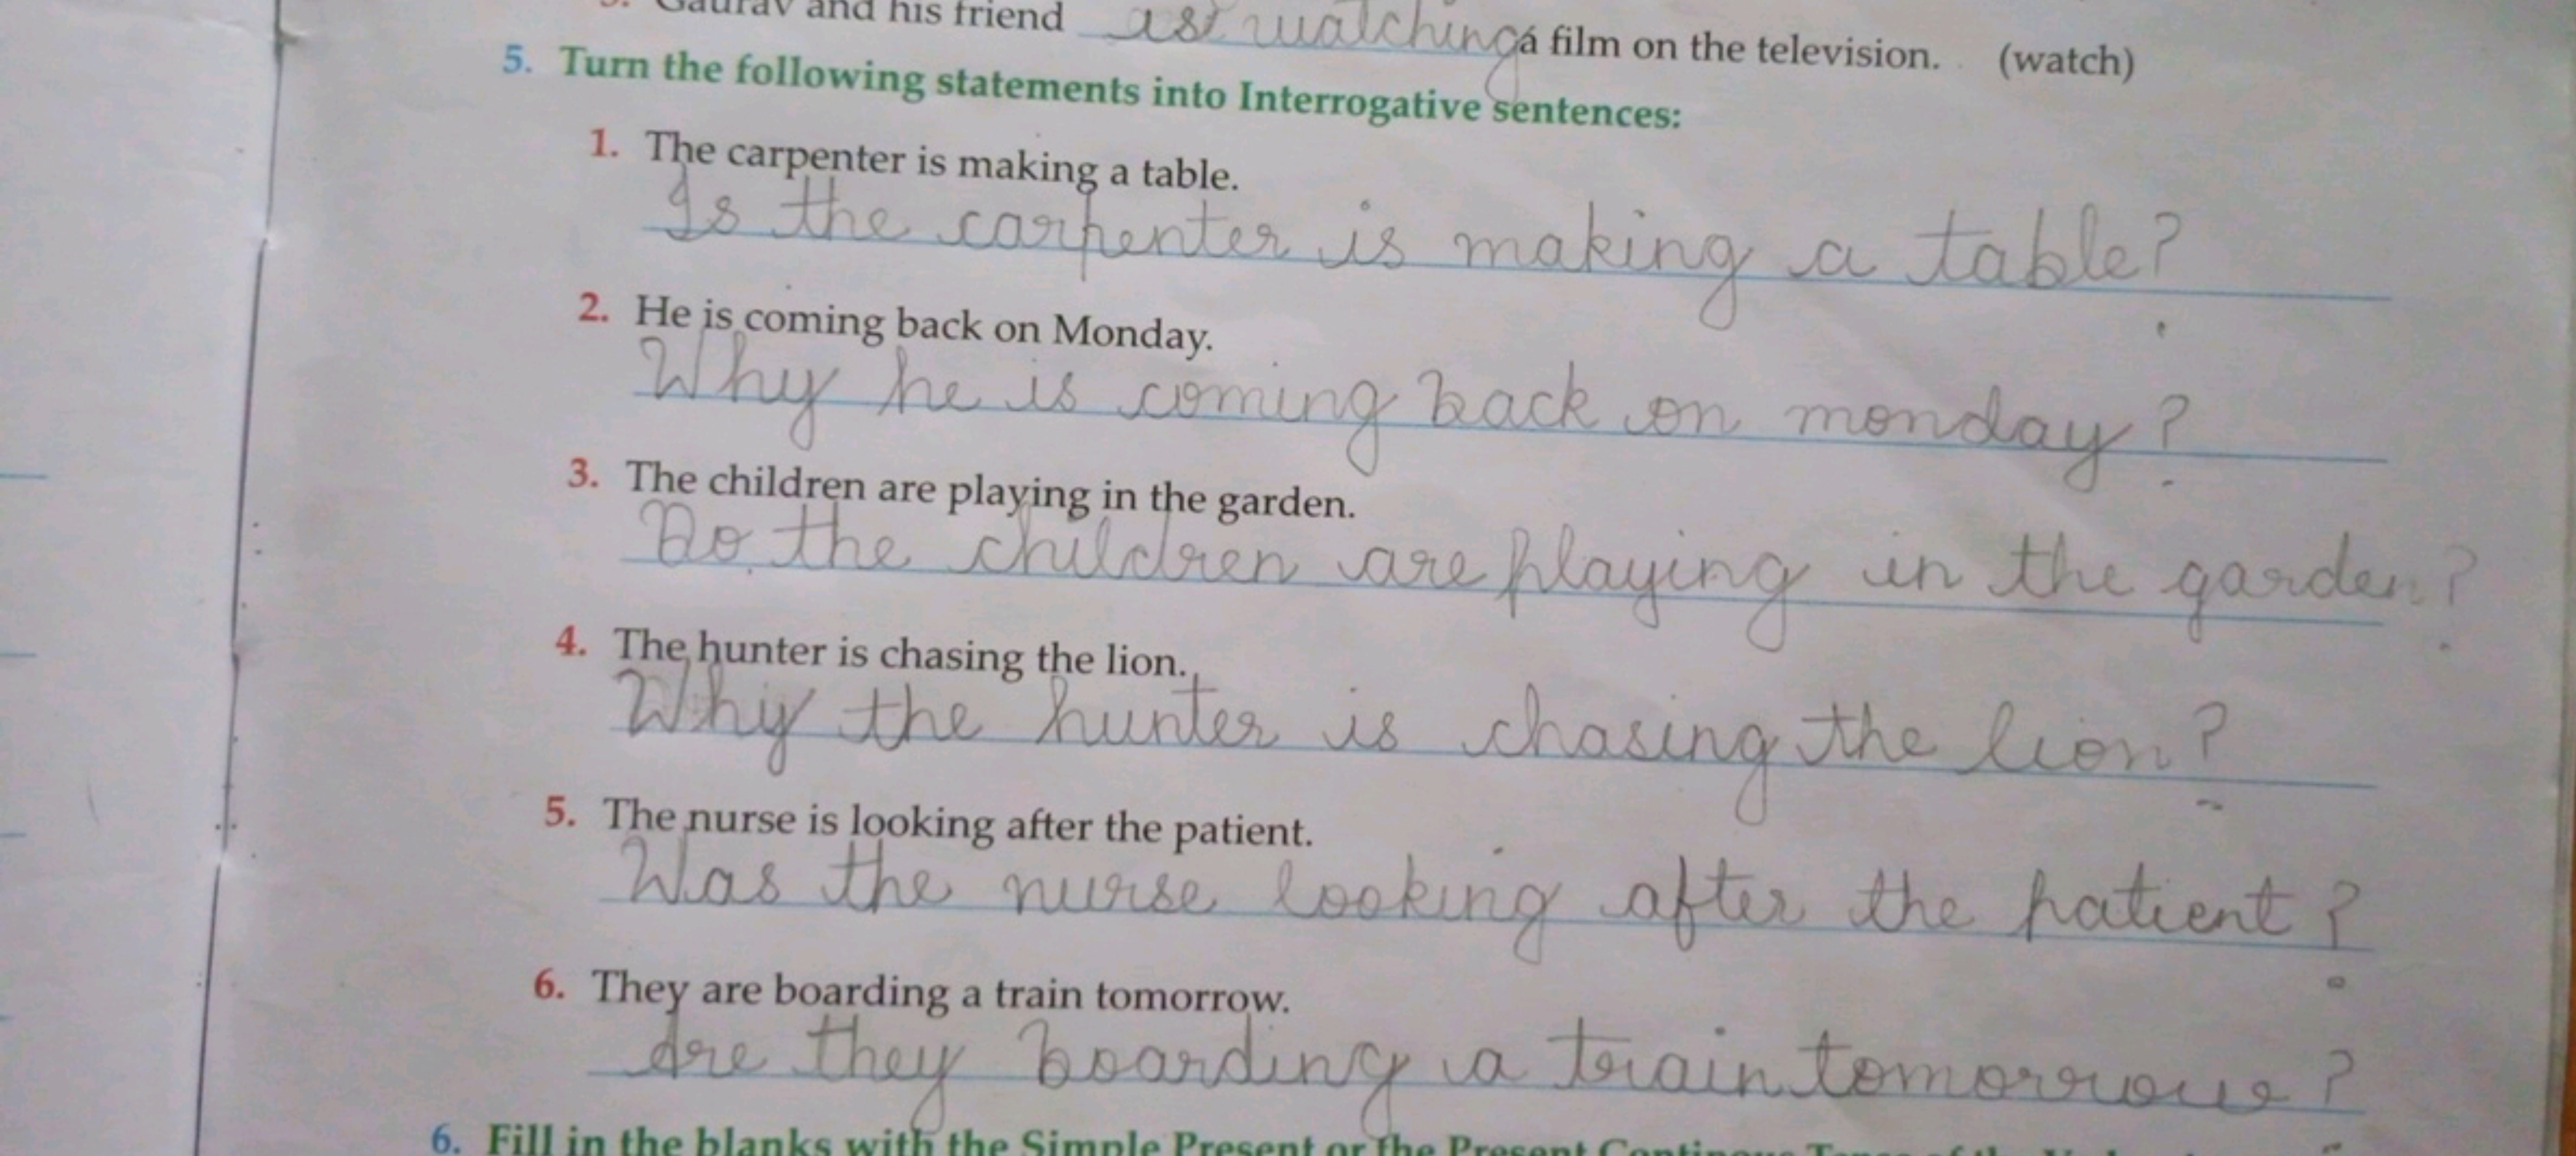 Gaurav and his friend watching a film on the television. (watch)
5. Turn the following statements into Interrogative sentences:
1. The carpenter is making a table.
Is the carpenter is making a table?
2. He is coming back on Monday.
Why he is coming back on monday?
3. The children are playing in the garden.
Do the children are playing in the garden?
4. The hunter is chasing the lion.
Why the hunter is chasing the lion?
5. The nurse is looking after the patient.
Was the nurse looking after the patient?
6. They are boarding a train tomorrow.
Are they boarding a train tomorrow?
6. Fill in the blanks with the Simple Present or the Present Continuous Tense of the